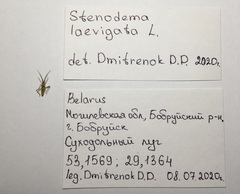 Stenodema
laevigata L.
det. Dmitrenok D.D. 2020г.
Belarus
Могилевская обл, Бобруйский р-н,
г. Бобруйск
Суходольный луг
53,1569; 29,1364
leg. Dmitrenok D.D. 08.07.2020г.